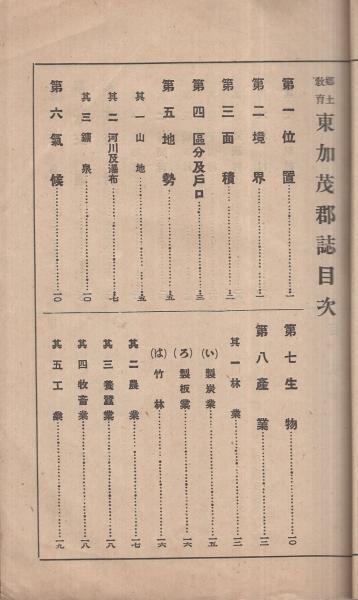 郷土教育 東加茂郡誌目次
第一位置……一
第二境界……一
第三面積……二
第四區分及戶口……三
第五地勢……五
其一山地……五
其二河川及瀑布……七
其三鑛泉……一〇
第六氣候……一〇
第七生物……一〇
第八產業……一二
其一林業……一三
(い)製炭業……一五
(ろ)製板業……一六
(は)竹林……一六
其二農業……一七
其三養蠶業……一八
其四牧畜業……一八
其五工業……一九